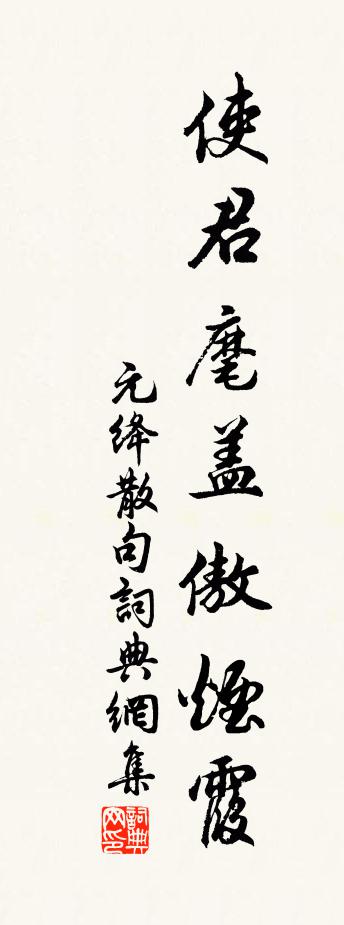 使君麾盖傲煙霞
元绛散句詞典網集
詞典网印